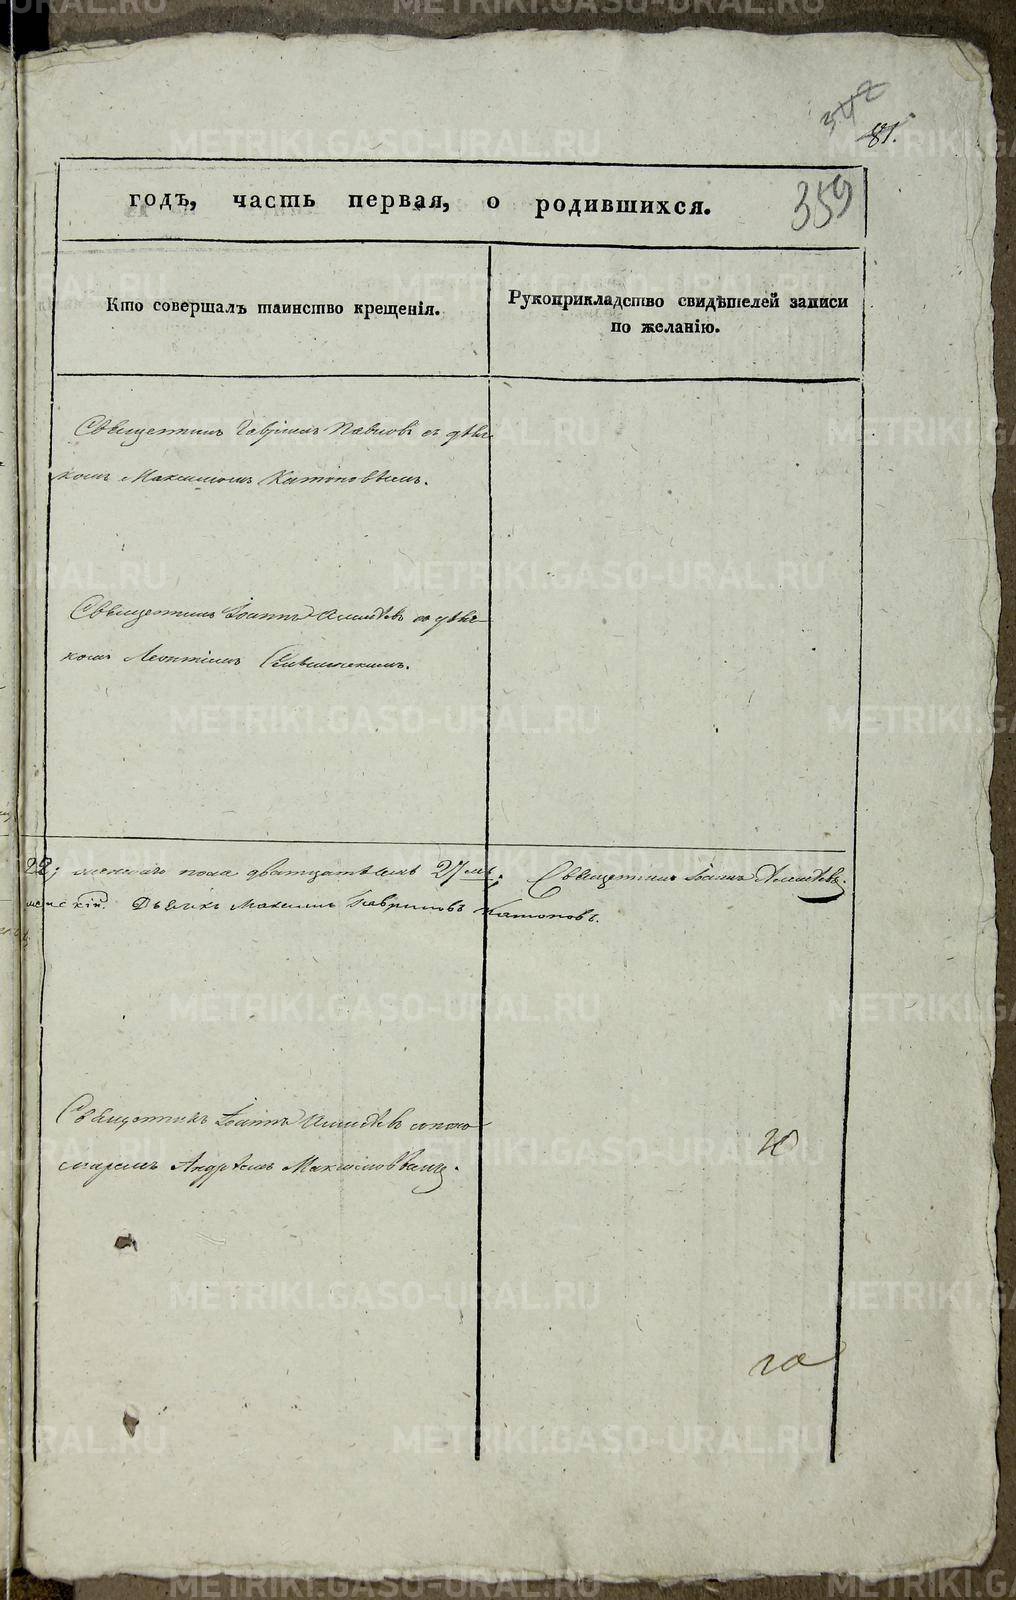 342
81.
годъ, часть первая, о родившихся.
359
Кто совершалъ таинство крещенія.
Рукоприкладство свидѣтелей записи
по желанію.
Священникъ Гавріилъ Павловъ съ дьяч-
комъ Максимомъ Катоновымъ.
Священникъ Іоаннъ со дьяч-
комъ Леонтіемъ
22; женскаго пола двадцать семь 27мь. Священникъ Іоаннъ
Дьячкъ Максимъ Гавриловъ Катоновъ.
Священникъ Іоаннъ съ поно-
маремъ Андреемъ Максимовымъ.
го
METRIKI.GASO-URAL.RU